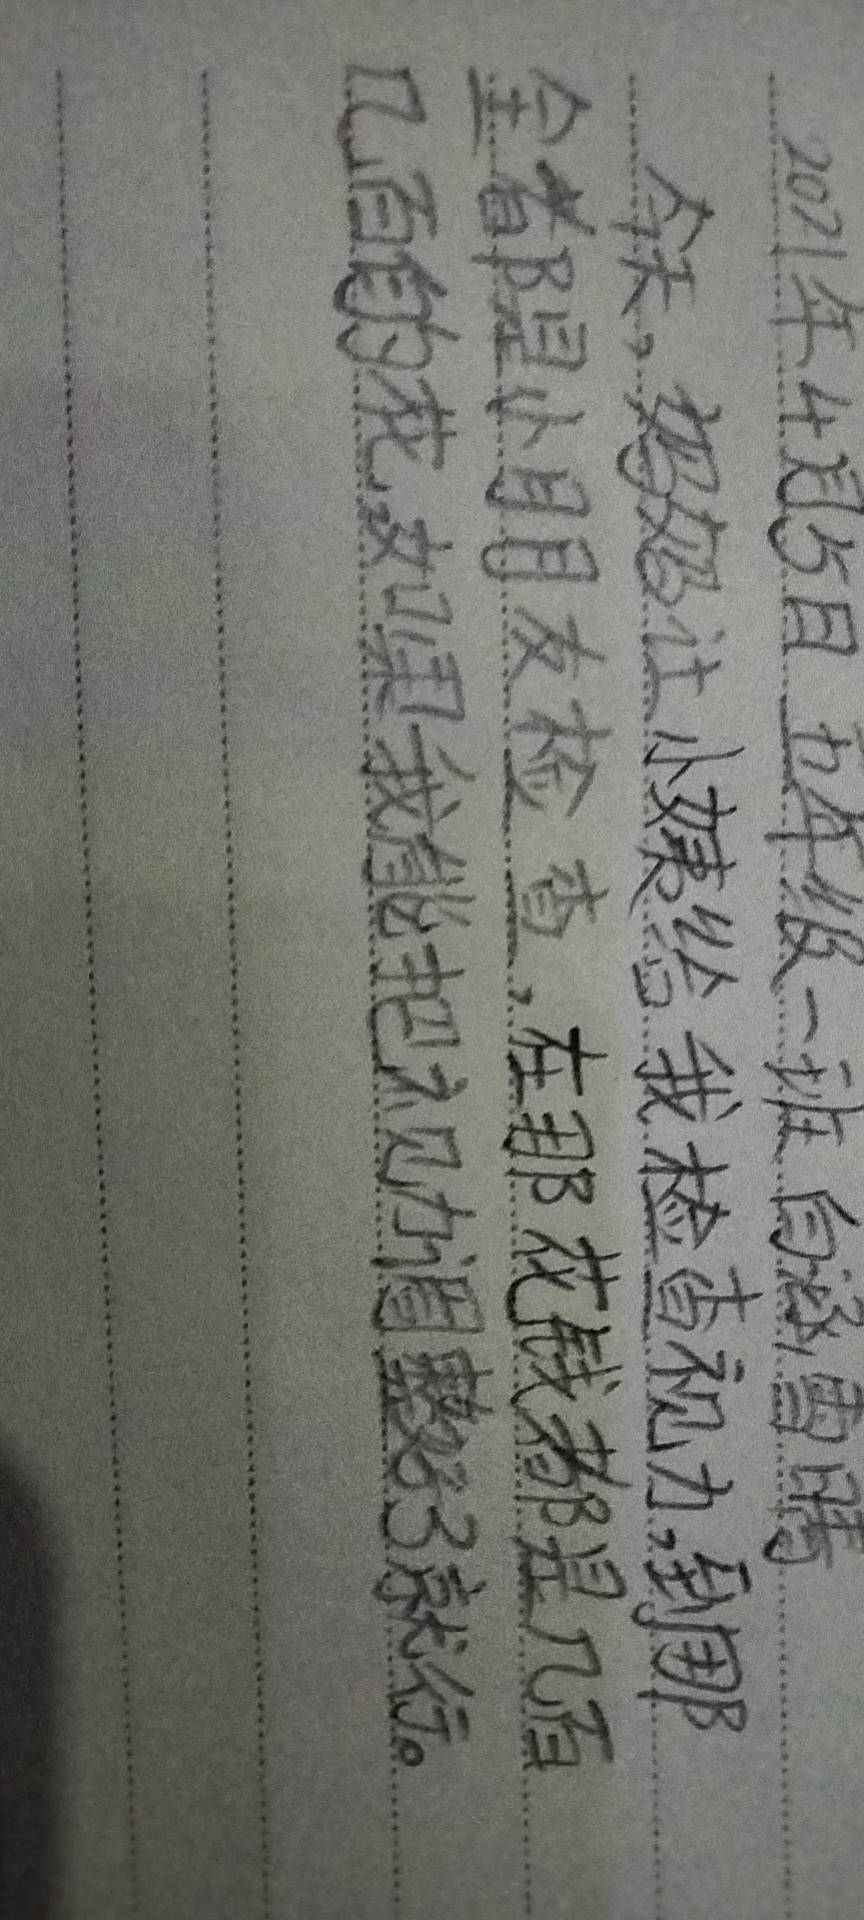 2021年4月5日 五年级一班 白涵雪晴
今天,妈妈让小媒给我检查视力,到那
全都是小朋友检查,在那花钱都是几百
几百的花,如果我能把视力调整好了就行。